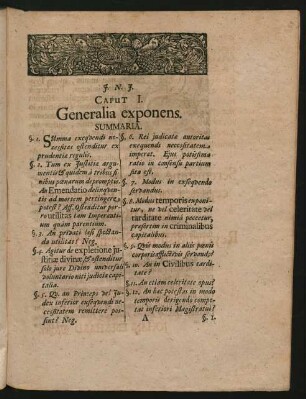 J. N. J.
CAPUT I.
Generalia exponens.
SUMMARIA.
§. 1. Summa exequendi necessitas ostenditur ex
prudentia regulis.
§. 2. Tum ex Justitia argumentis & quidem a tribus finibus pœnarum depromptis.
An Emendatio delinquentis ad mortem pertingere possit? Aff. Ostenditur parvæ utilitas tam Imperantium quam parentum.
§. 3. An privati læsi spectanda utilitas? Neg.
§. 4. Agitur de expletione justitiæ divinæ, & ostenditur
solo jure Divino universali
voluntario niti judicia capitalia.
§. 5. Qu. an Princeps vel Judex inferior exsequendi necessitatem remittere possint? Neg.
§. 6. Rei judicatæ autoritas
exequendi necessitatem
imperat. Ejus potissima
ratio in consensu partium
sita est.
§. 7. Modus in exsequendo
servandus.
§. 8. Modus temporis exponitur, ne vel celeritate vel
tarditate nimia peccetur,
præsertim in criminalibus
capitalibus.
§. 9. Quis modus in aliis pœnis
corporis afflictivis servandus?
§. 10. An in Civilibus tarditate?
§. 11. An etiam celeritate opus?
§. 12. An hæc potestas in modo
temporis dirigendo competat inferiori Magistratui?
A
§. 1.